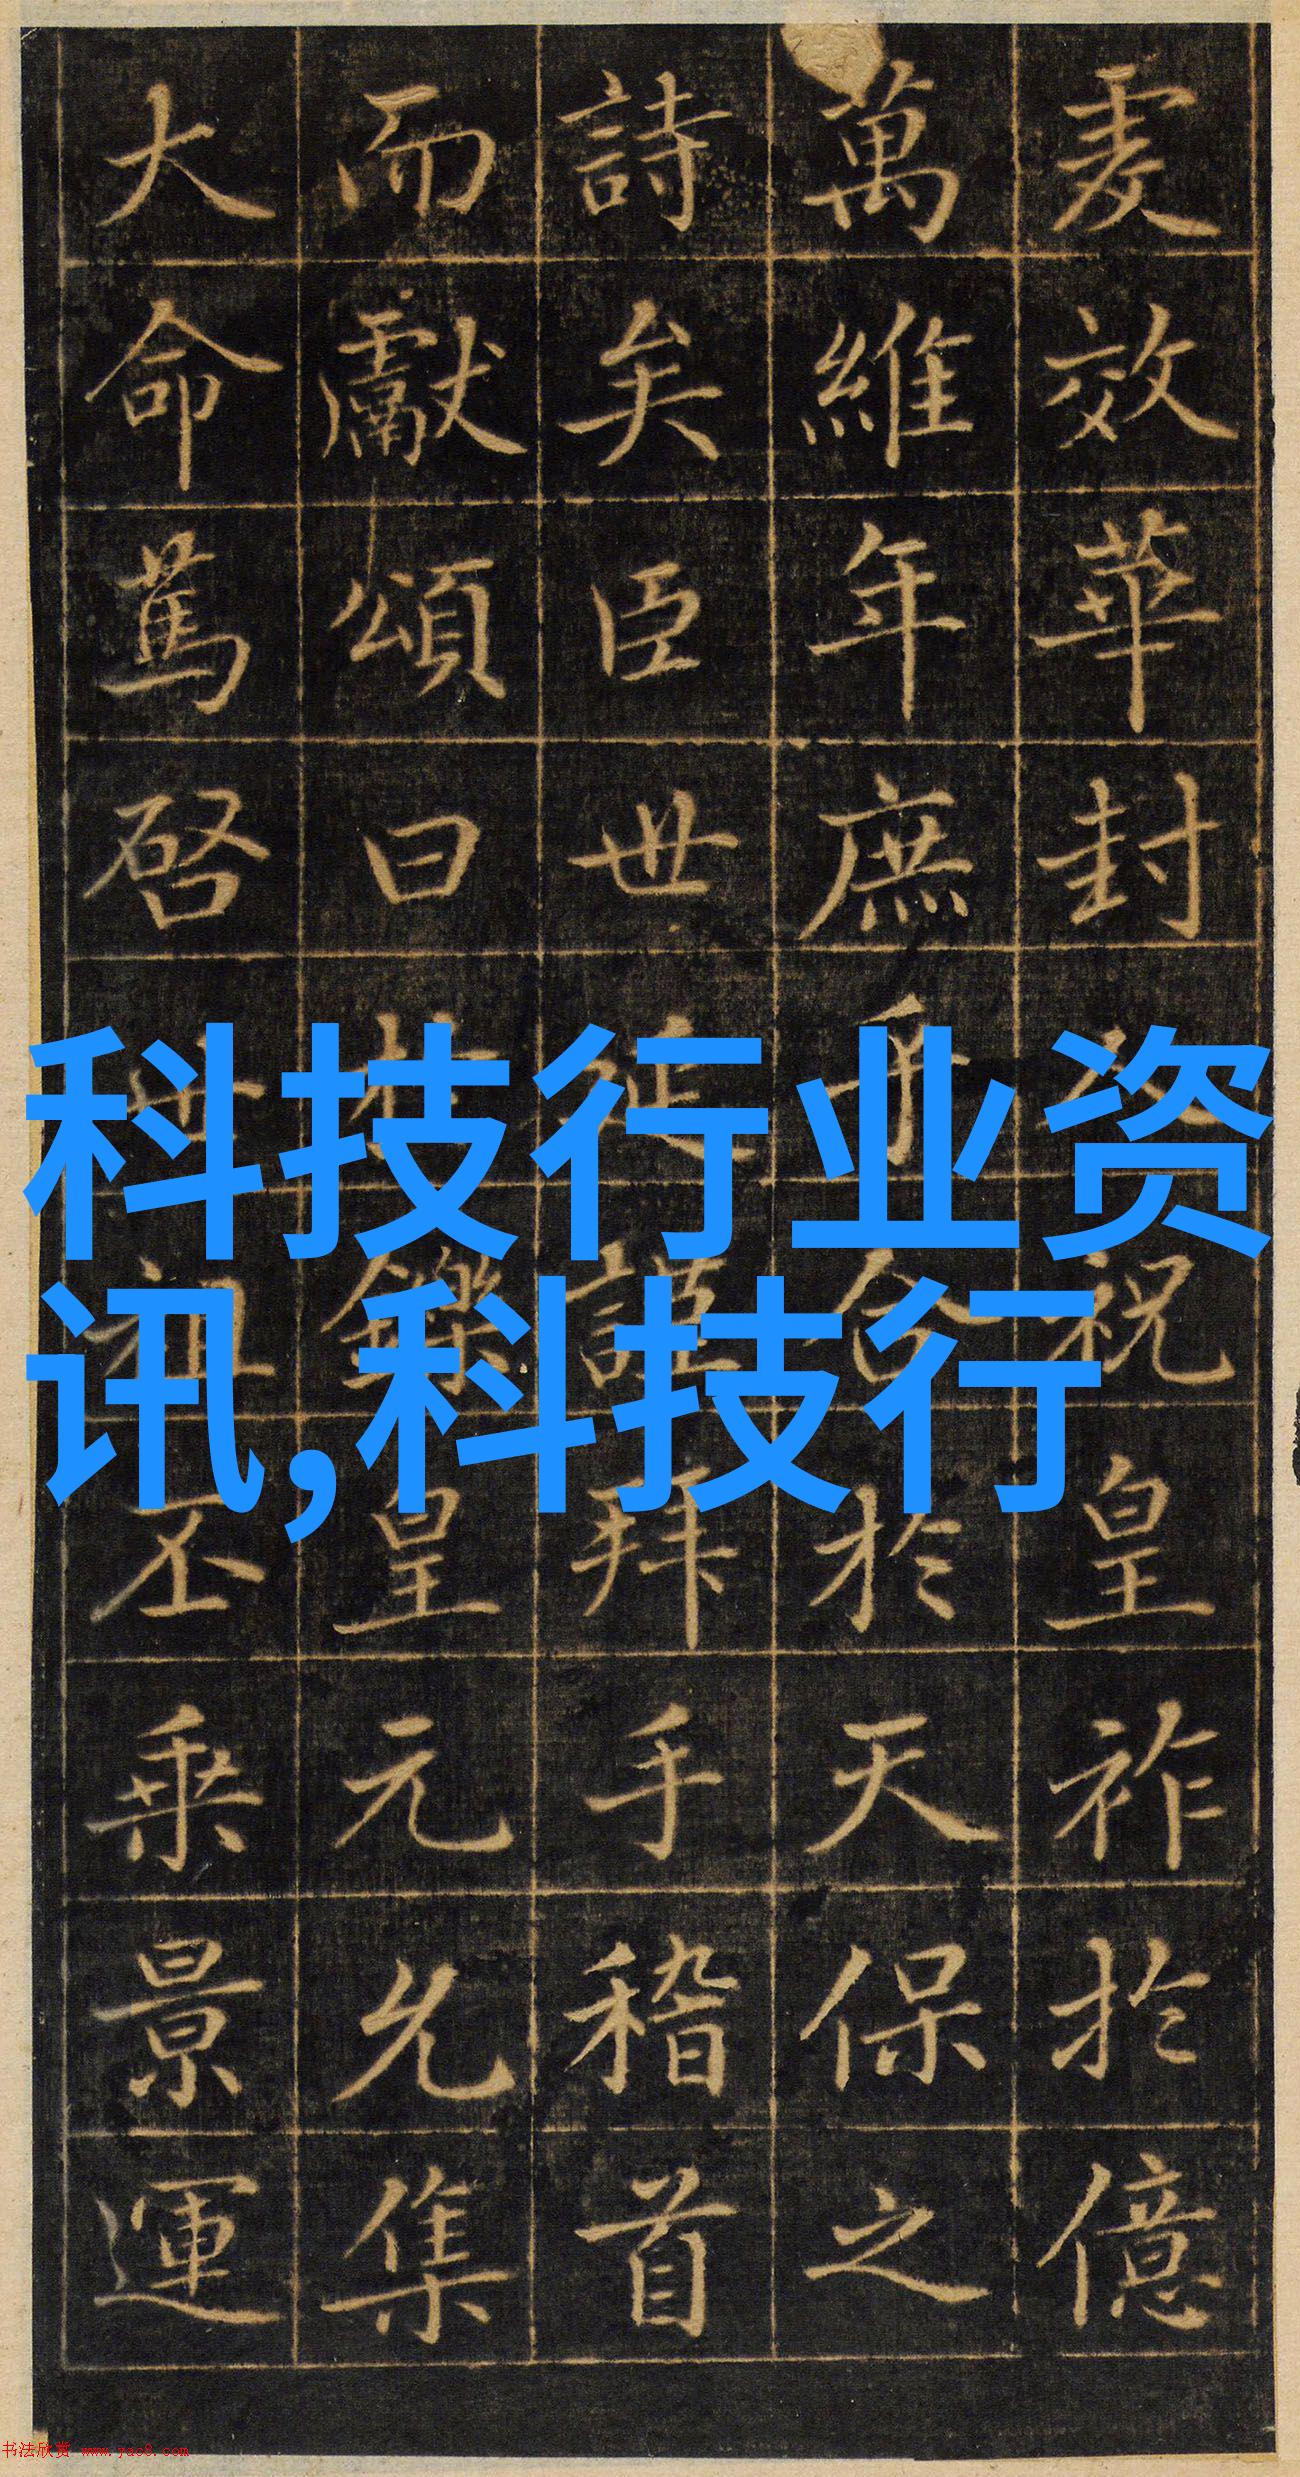 效華封祝皇祚於億
萬維年庶乎合於天保之
詩矣臣世延謹拜手稽首
而獻頌曰於鑠皇元允集
大命篤啓世祖丕乘景運
科技行业资
讯,科技行
书法欣赏 www.yac8.com